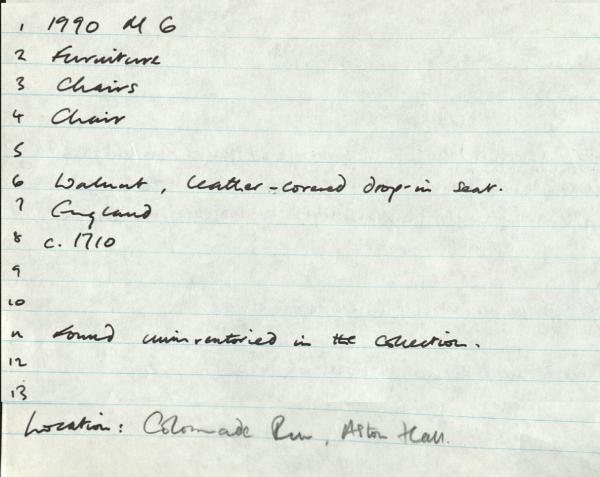 1 1990 M 6
2 Furniture
3 Chairs
4 Chair
5
6 Walnut, leather-covered drop-in seat.
7 England
8 c. 1710
9
10
11 Found uninventoried in the collection.
12
13
Location: Colonnade Rm, Aston Hall.